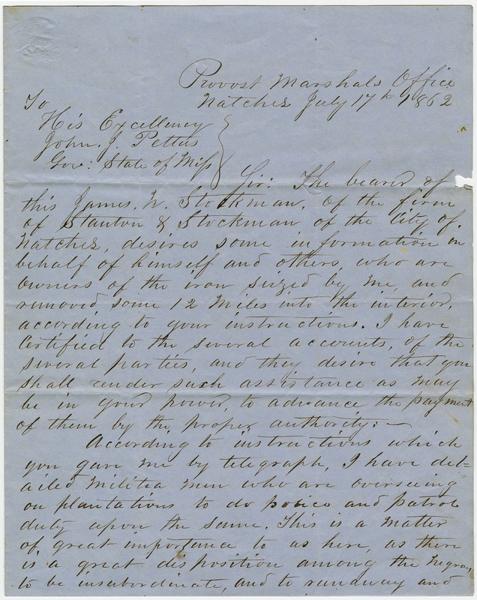 Provost Marshals Office
Natchez July 17th 1862
To
His Excellency
John. J. Pettus
Gov: State of Miss
Sir: The bearer of
this James. W. Stockman, of the firm
of Stanton & Stockman of the City of
Natchez, desires some information on
behalf of himself and others, who are
owners of the iron seized by me, and
removed some 12 miles into the interior,
according to your instructions. I have
certified to the several accounts, of the
several parties, and they desire that you
shall render such assistance as may
be in your power, to advance the payment
of them by the proper authority:—
According to instructions which
you gave me by telegraph, I have det-
ailed militia men who are overseeing
on plantations to do police and patrol
duty upon the same. This is a matter
of great importance to us here, as there
is a great disposition among the negroes
to be insubordinate, and to runaway and